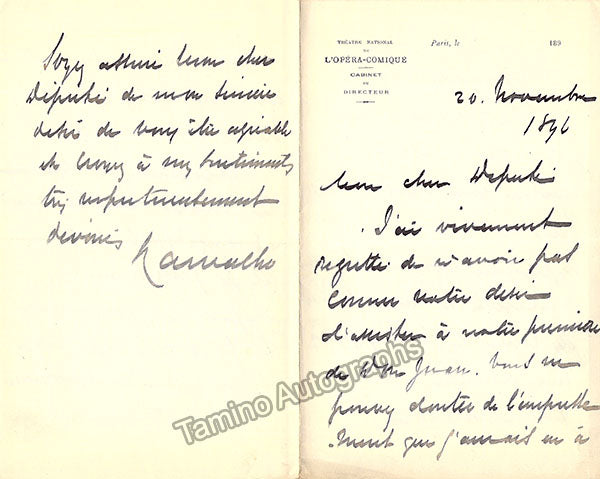 THÉÂTRE NATIONAL
DE
L'OPÉRA-COMIQUE
CABINET
DU
DIRECTEUR
Paris, le 189
20. Novembre
1896
Mon cher Député
J'ai vivement
regretté de n'avoir pas
connu votre désir
d'assister à notre première
de Don Juan. Vous ne
pouvez douter de l'empresse
-ment que j'aurais eu à
Soyez assuré mon cher
Député de mon sincère
désir de vous être agréable
et croyez à mes sentiments
très respectueusement
dévoués
Carvalho
Tamino Autographs